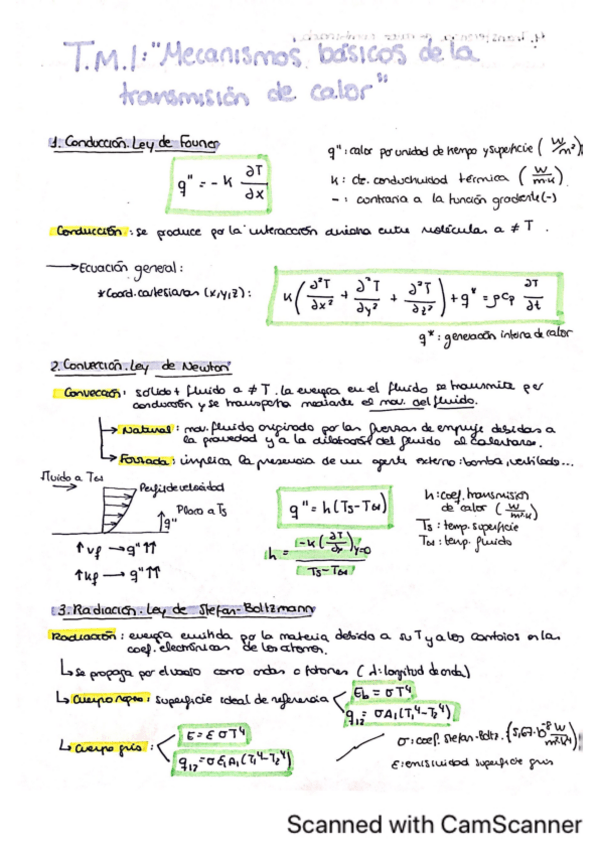 T.M.1: "Mecanismos básicos de la
transmisión de calor"
1. Conducción. Ley de Fourier
q'' = -k ∂T/∂x
q'': calor por unidad de tiempo y superficie (W/m²)
k: cte. conductividad térmica (W/m·k)
- : contraria a la función gradiente (-)
Conducción: se produce por la interacción entre moléculas a ≠ T.
→ Ecuación general:
* Coord. cartesianas (x,y,z):
k(∂²T/∂x² + ∂²T/∂y² + ∂²T/∂z²) + q* = ρcp ∂T/∂t
q*: generación interna de calor
2. Convección. Ley de Newton
Convección: sólido + fluido a ≠ T. La energía en el fluido se transmite por
conducción y se transporta mediante el mov. del fluido.
→ Natural: mov. fluido originado por las fuerzas de empuje debidas a
la gravedad y a la dilatación del fluido al calentarse.
→ Forzada: implica la presencia de un agente externo: bomba, ventilado...
fluido a T∞
Perfil de velocidad
Placa a Ts
q''
↑ vf → q'' ↑↑
↑ kf → q'' ↑↑
q'' = h(Ts-T∞)
h = -k(∂T/∂y)y=0 / Ts-T∞
h: coef. transmisión
de calor (W/m²k)
Ts: temp. superficie
T∞: temp. fluido
3. Radiación. Ley de Stefan-Boltzmann
Radiación: energía emitida por la materia debido a su T y a los cambios en las
conf. electrónicas de los átomos.
↳ Se propaga por el vacío como ondas o fotones (λ: longitud de onda)
↳ Cuerpo negro: superficie ideal de referencia
Eb = σT⁴
q12 = σA1(T1⁴-T2⁴)
↳ Cuerpo gris:
E = ε σT⁴
q12 = σε1A1(T1⁴-T2⁴)
σ: coef. Stefan-Boltz. (5,67·10⁻⁸ W/m²k⁴)
ε: emisividad superficie gris
Scanned with CamScanner